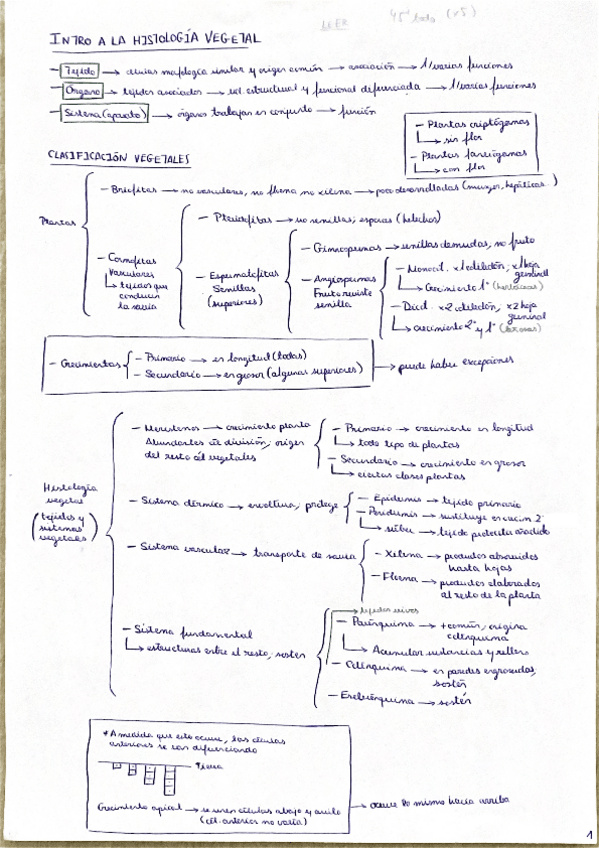 LEER
45' todo (x5)
INTRO A LA HISTOLOGÍA VEGETAL
- Tejido → células morfología similar y origen común → asociación → 1/varias funciones
- Órgano → tejidos asociados → ud estructural y funcional diferenciada → 1/varias funciones
- Sistema (aparato) → órganos trabajan en conjunto → función
- Plantas criptógamas
↳ sin flor
- Plantas fanerógamas
↳ con flor
CLASIFICACIÓN VEGETALES
Plantas
- Briofitas → no vasculares, no floema no xilema → poco desarrolladas (musgos, hepáticas..)
- Cormofitas
Vasculares
↳ tejidos que
conducen
la savia
- Pteridofitas → no semillas; esporas (helechos)
- Espermatofitas
Semillas
(superiores)
- Gimnospermas → semillas desnudas, no fruto
- Angiospermas
Fruto reviste
semilla
- Monocot. x1 cotiledón, x1 hoja
germinal
↳ Crecimiento 1º (herbáceas)
- Dicot. x2 cotiledón, x2 hoja
germinal
↳ crecimiento 2º y 1º (leñosas)
- Crecimientos
- Primario → en longitud (todas)
- Secundario → en grosor (algunas superiores)
→ puede haber excepciones
Histología
vegetal
(tejidos y
sistemas
vegetales)
- Meristemos → crecimiento planta
Abundantes en división; origen
del resto cél vegetales
- Primario → crecimiento en longitud
↳ todo tipo de plantas
- Secundario → crecimiento en grosor
↳ ciertas clases plantas
- Sistema dérmico → envoltura; protege
- Epidermis → tejido primario
- Peridermis → sustituye en crecim 2º
↳ súber → tejido protector añadido
- Sistema vascular → transporte de savia
- Xilema → productos absorbidos
hasta hojas
- Floema → productos elaborados
al resto de la planta
- Sistema fundamental
↳ estructuras entre el resto, sostén
→ tejidos vivos
- Parénquima → + común, origina
colénquima
↳ Acumular sustancias y relleno
- Colénquima → en paredes engrosadas,
sostén
- Esclerénquima → sostén
* A medida que esto ocurre, las células
anteriores se van diferenciando
Tierra
Crecimiento apical → se unen células abajo y arriba
(cél. anterior no varía)
→ ocurre lo mismo hacia arriba
1